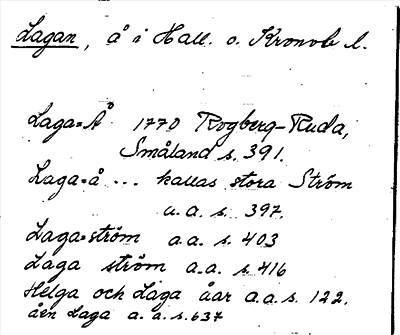 Lagan, å i Hall. o. Kronob l.
Laga=Å 1770 Rogberg-Ruda,
Småland s. 391.
Laga=å ... kallas stora Ström
a. a. s. 397.
Laga=ström a.a. s. 403
Laga ström a.a. s. 416
Helga och Laga åar a.a. s. 122.
åen Laga a. a. s. 637